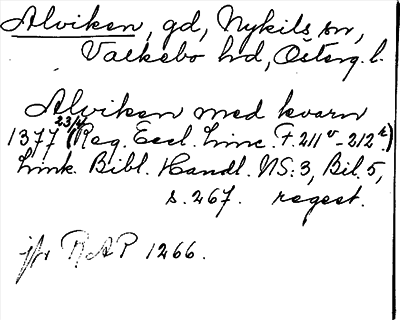 Alviken, gd, Nykils sn,
Valkebo hd, Österg. l.
Alviken med kvarn
1377 23/4 (Reg. Eccl. Linc. F. 211v-212r)
Link. Bibl. Handl. NS:3, Bil. 5,
s. 267. regest.
jfr RAP 1266.